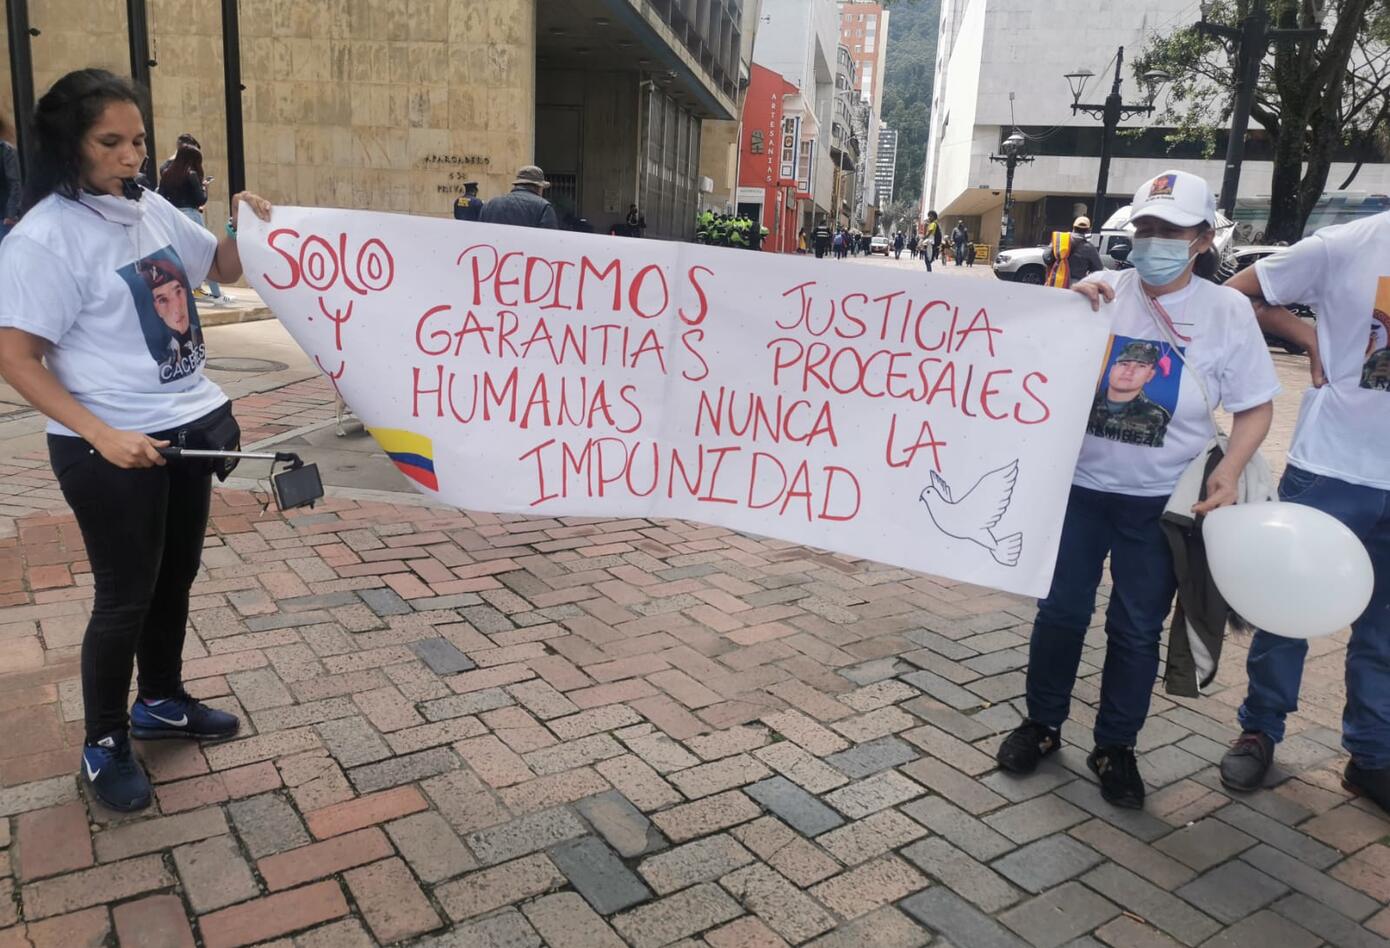 SOLO PEDIMOS JUSTICIA
Y GARANTIAS PROCESALES
Y HUMANAS NUNCA LA
IMPUNIDAD
ARTESANIAS
APARCADERO
PRIVADO
CACERES
RAMIREZ